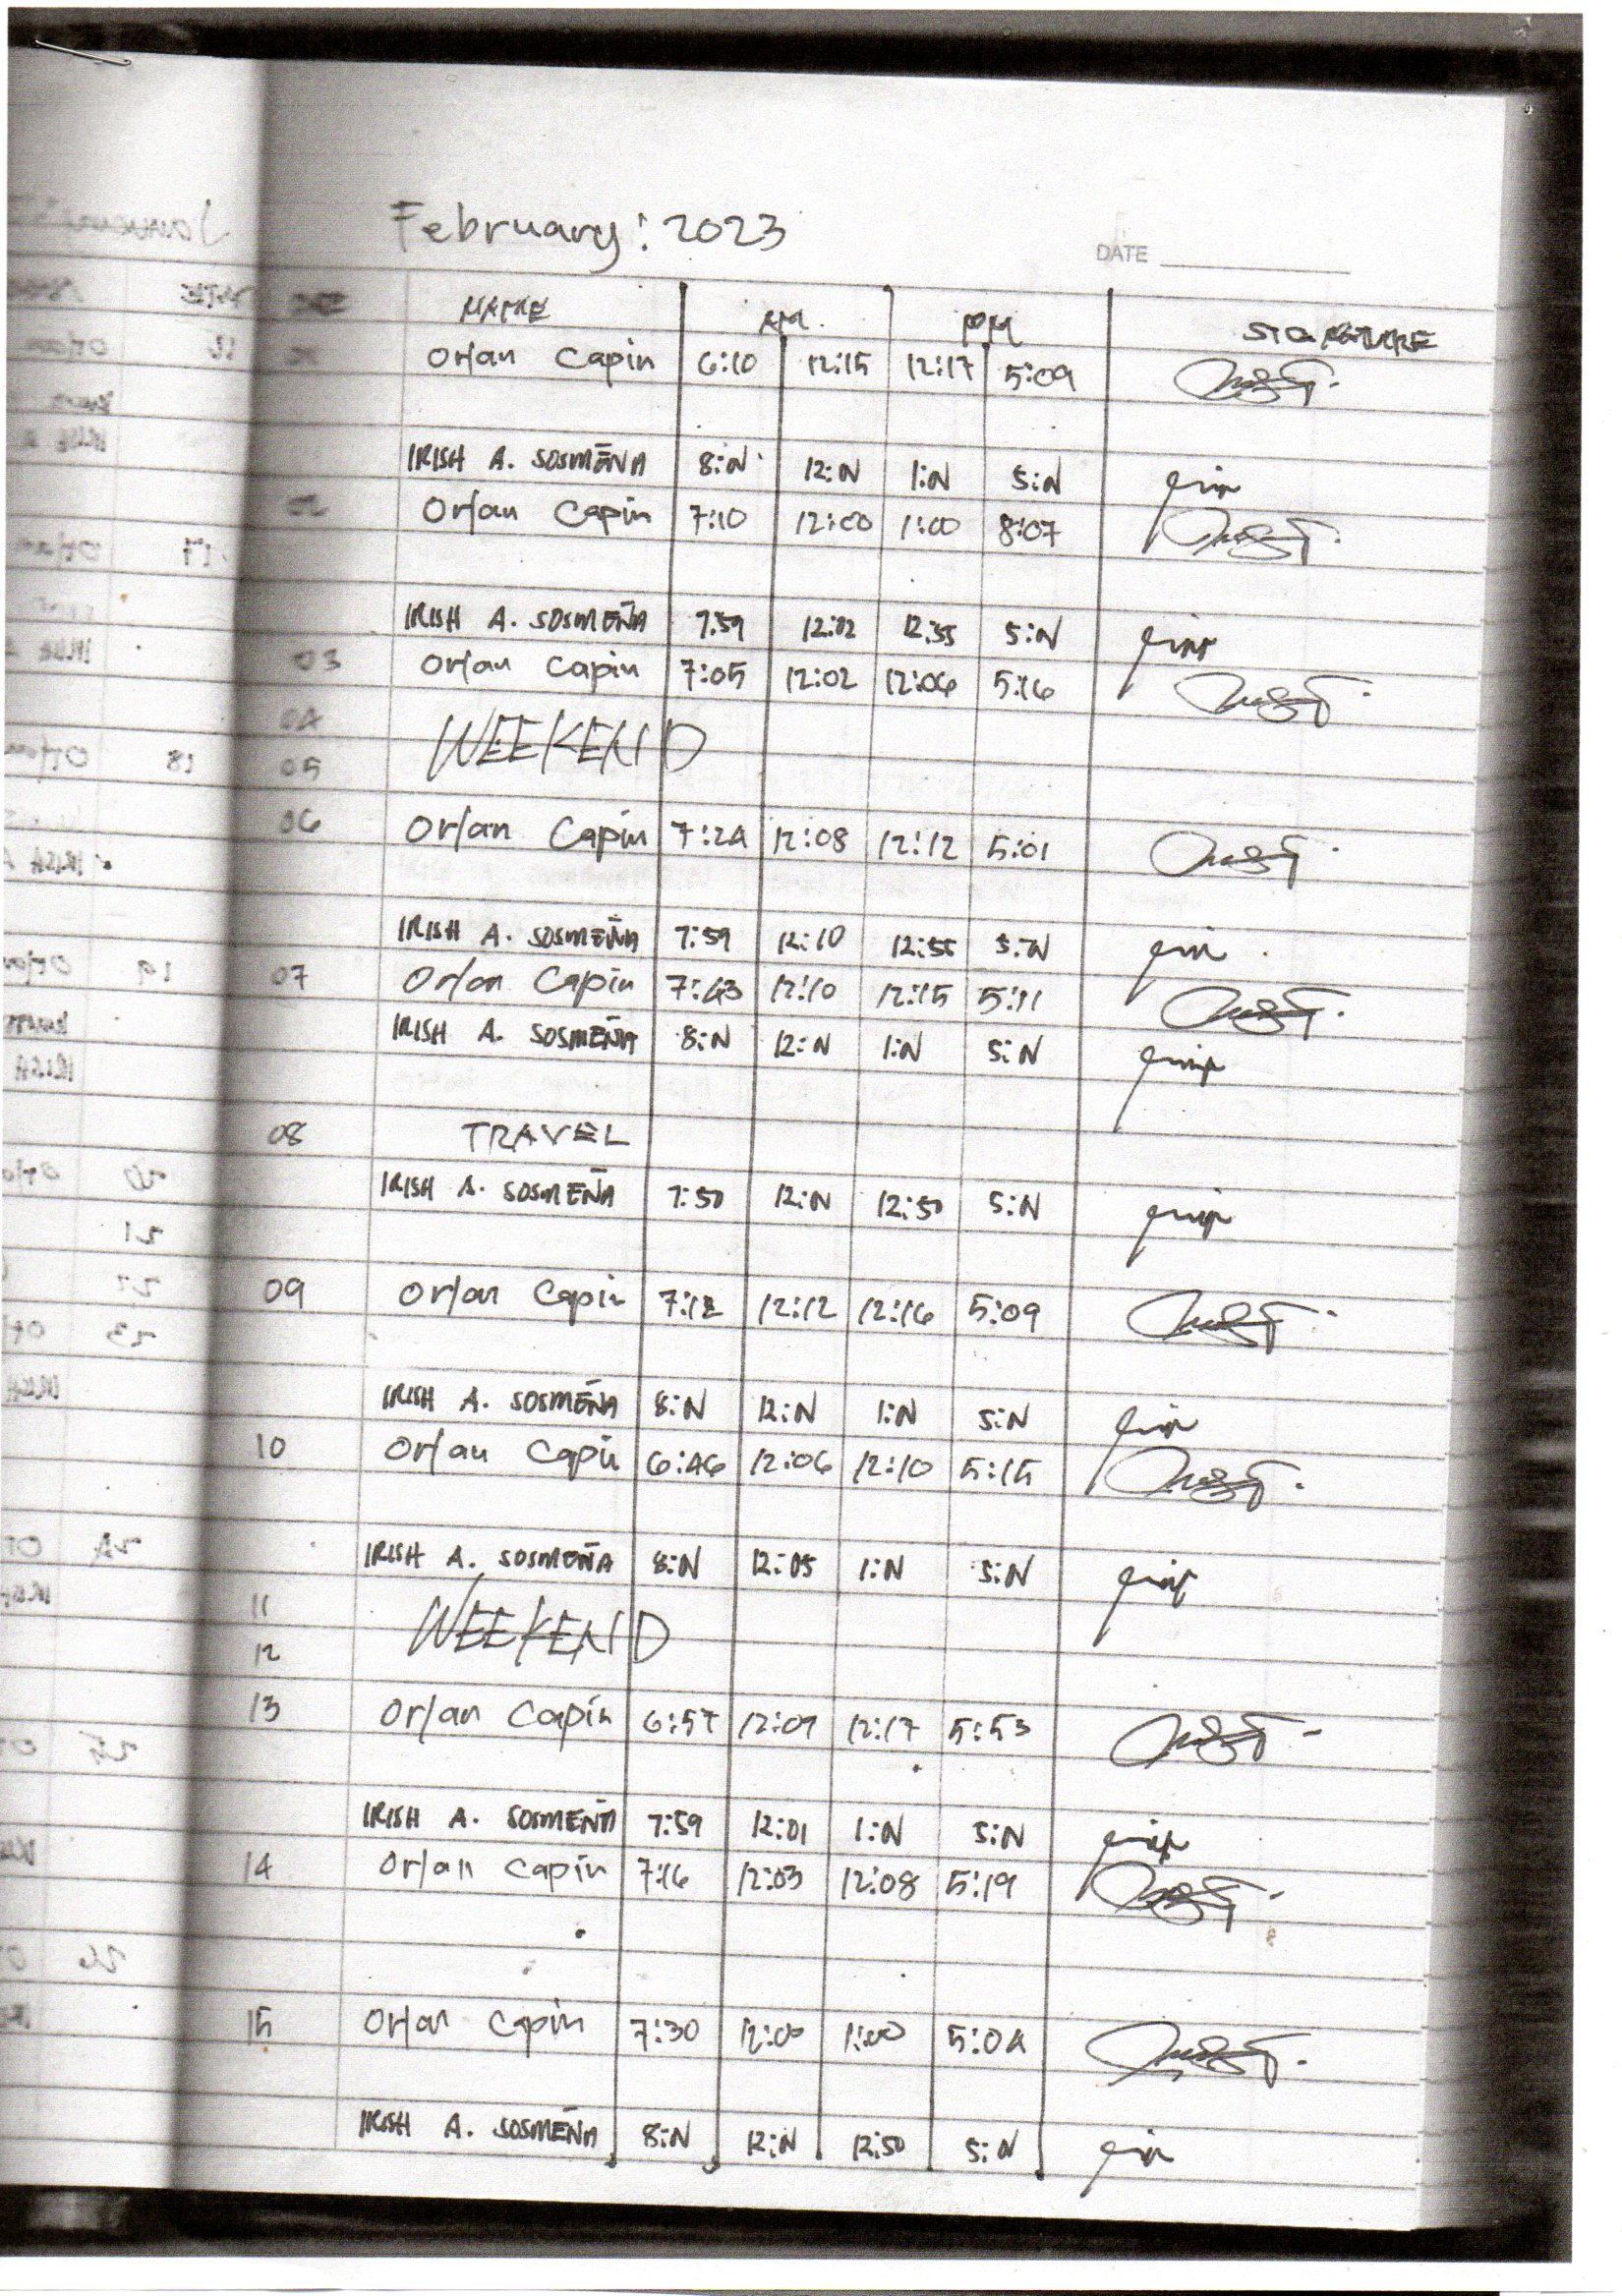 February: 2023
DATE
NAME AM PM SIGNATURE
Orlan Capin 6:10 12:15 12:17 5:09
IRISH A. SOSMEÑA 8:N 12:N 1:N 5:N
Orlan Capin 7:10 12:00 1:00 8:07
IRISH A. SOSMEÑA 7:59 12:02 12:55 5:N
03 Orlan Capin 7:05 12:02 12:06 5:16
04 WEEKEND
05
06 Orlan Capin 7:24 12:08 12:12 5:01
IRISH A. SOSMEÑA 7:59 12:10 12:55 5:N
07 Orlan Capin 7:43 12:10 12:15 5:11
IRISH A. SOSMEÑA 8:N 12:N 1:N 5:N
08 TRAVEL
IRISH A. SOSMEÑA 7:50 12:N 12:50 5:N
09 Orlan Capin 7:12 12:12 12:16 5:09
IRISH A. SOSMEÑA 8:N 12:N 1:N 5:N
10 Orlan Capin 6:46 12:06 12:10 5:15
IRISH A. SOSMEÑA 8:N 12:05 1:N 5:N
11 WEEKEND
12
13 Orlan Capin 6:57 12:09 12:17 5:53
IRISH A. SOSMEÑA 7:59 12:01 1:N 5:N
14 Orlan Capin 7:16 12:03 12:08 5:19
15 Orlan Capin 7:30 12:00 1:00 5:04
IRISH A. SOSMEÑA 8:N 12:N 12:50 5:N